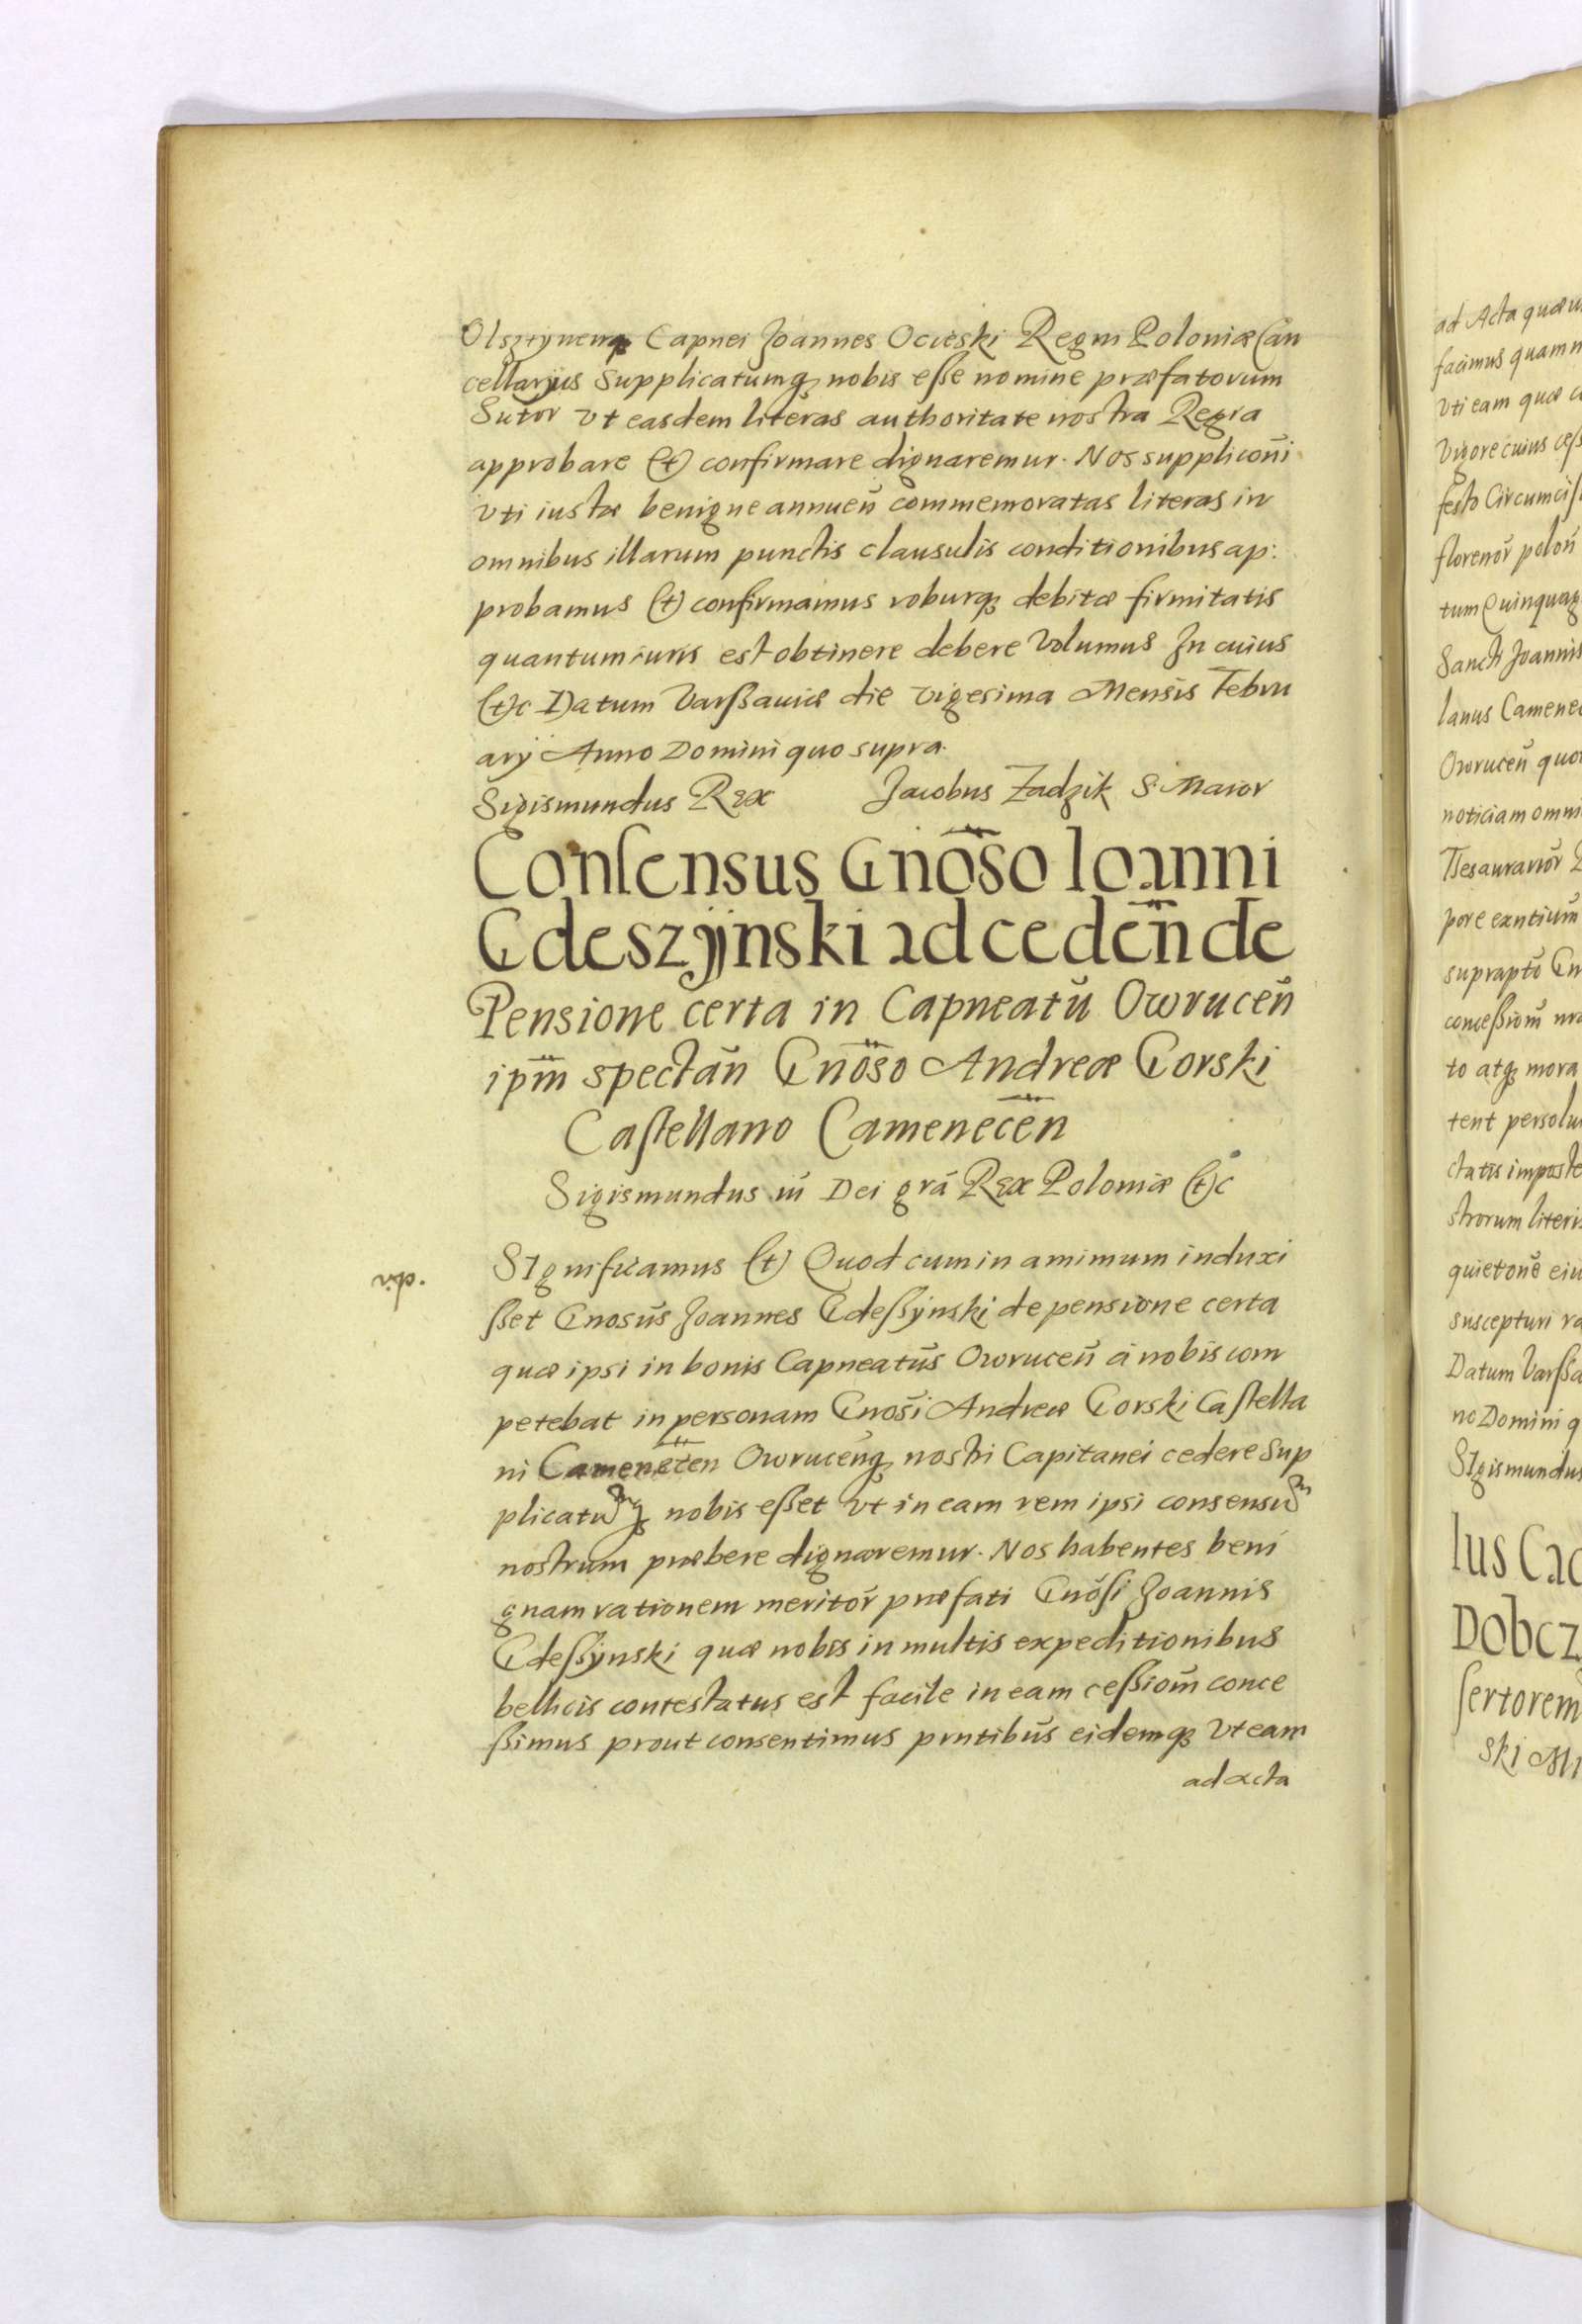 Olsztynenq Capnei Joannes Ocieski Regni Poloniæ Can
cellarjus Supplicatumq nobis esse nomine præfatorum
Sutor vt easdem literas authoritate nostra Regia
approbare (et) confirmare dignaremur. Nos suppliconi
vti iustæ benigne annuen commemoratas literas in
omnibus illarum punctis clausulis conditionibus ap:
probamus (et) confirmamus roburq debitæ firmitatis
quantum iuris est obtinere debere volumus In cuius
(et)c Datum Varssaviæ die vigesima Mensis Febru
arij Anno Domini quo supra.
Sigismundus Rex Jacobus Zadzik S. Maior
Consensus Gnōso Ioanni
Gdeszÿnski ad ceden̄ de
Pensione certa in Capneatū Owrucen̄
ipm̄ spectan̄ Gnōso Andreæ Gorski
Castellano Camenecēn
Sigismundus iii Dei grā Rex Poloniæ (et)c
SIgnificamus (et) Quod cum in amimum induxi
sset Gnosūs Joannes Gdessÿnski de pensione certa
quæ ipsi in bonis Capneatūs Owrucen̄ à nobis com
petebat in personam Gnosī Andreæ Gorski Castella
ni Camenecēn Owrucēnq nostri Capitanei cedere Sup
plicatumq nobis esset vt in eam rem ipsi consensum
nostrum præbere dignaremur. Nos habentes beni
gnam rationem meritōr præfati Gnōsi Joannis
Gdessÿnski quæ nobis in multis expeditionibus
bellicis contestatus est facile in eam cessiom̄ conce
ssimus prout consentimus prntibūs eidemq vt eam
ad acta
ad Acta
facimus quam
vti eam quæ
Vigore cuius
festo
florenōr polon̄
Sancti Joannis
lanus
Owrucen̄
noticiam
suscepturi
Datum
no Domini
SIgismundus
lus
Dobcz
sertorem
ski